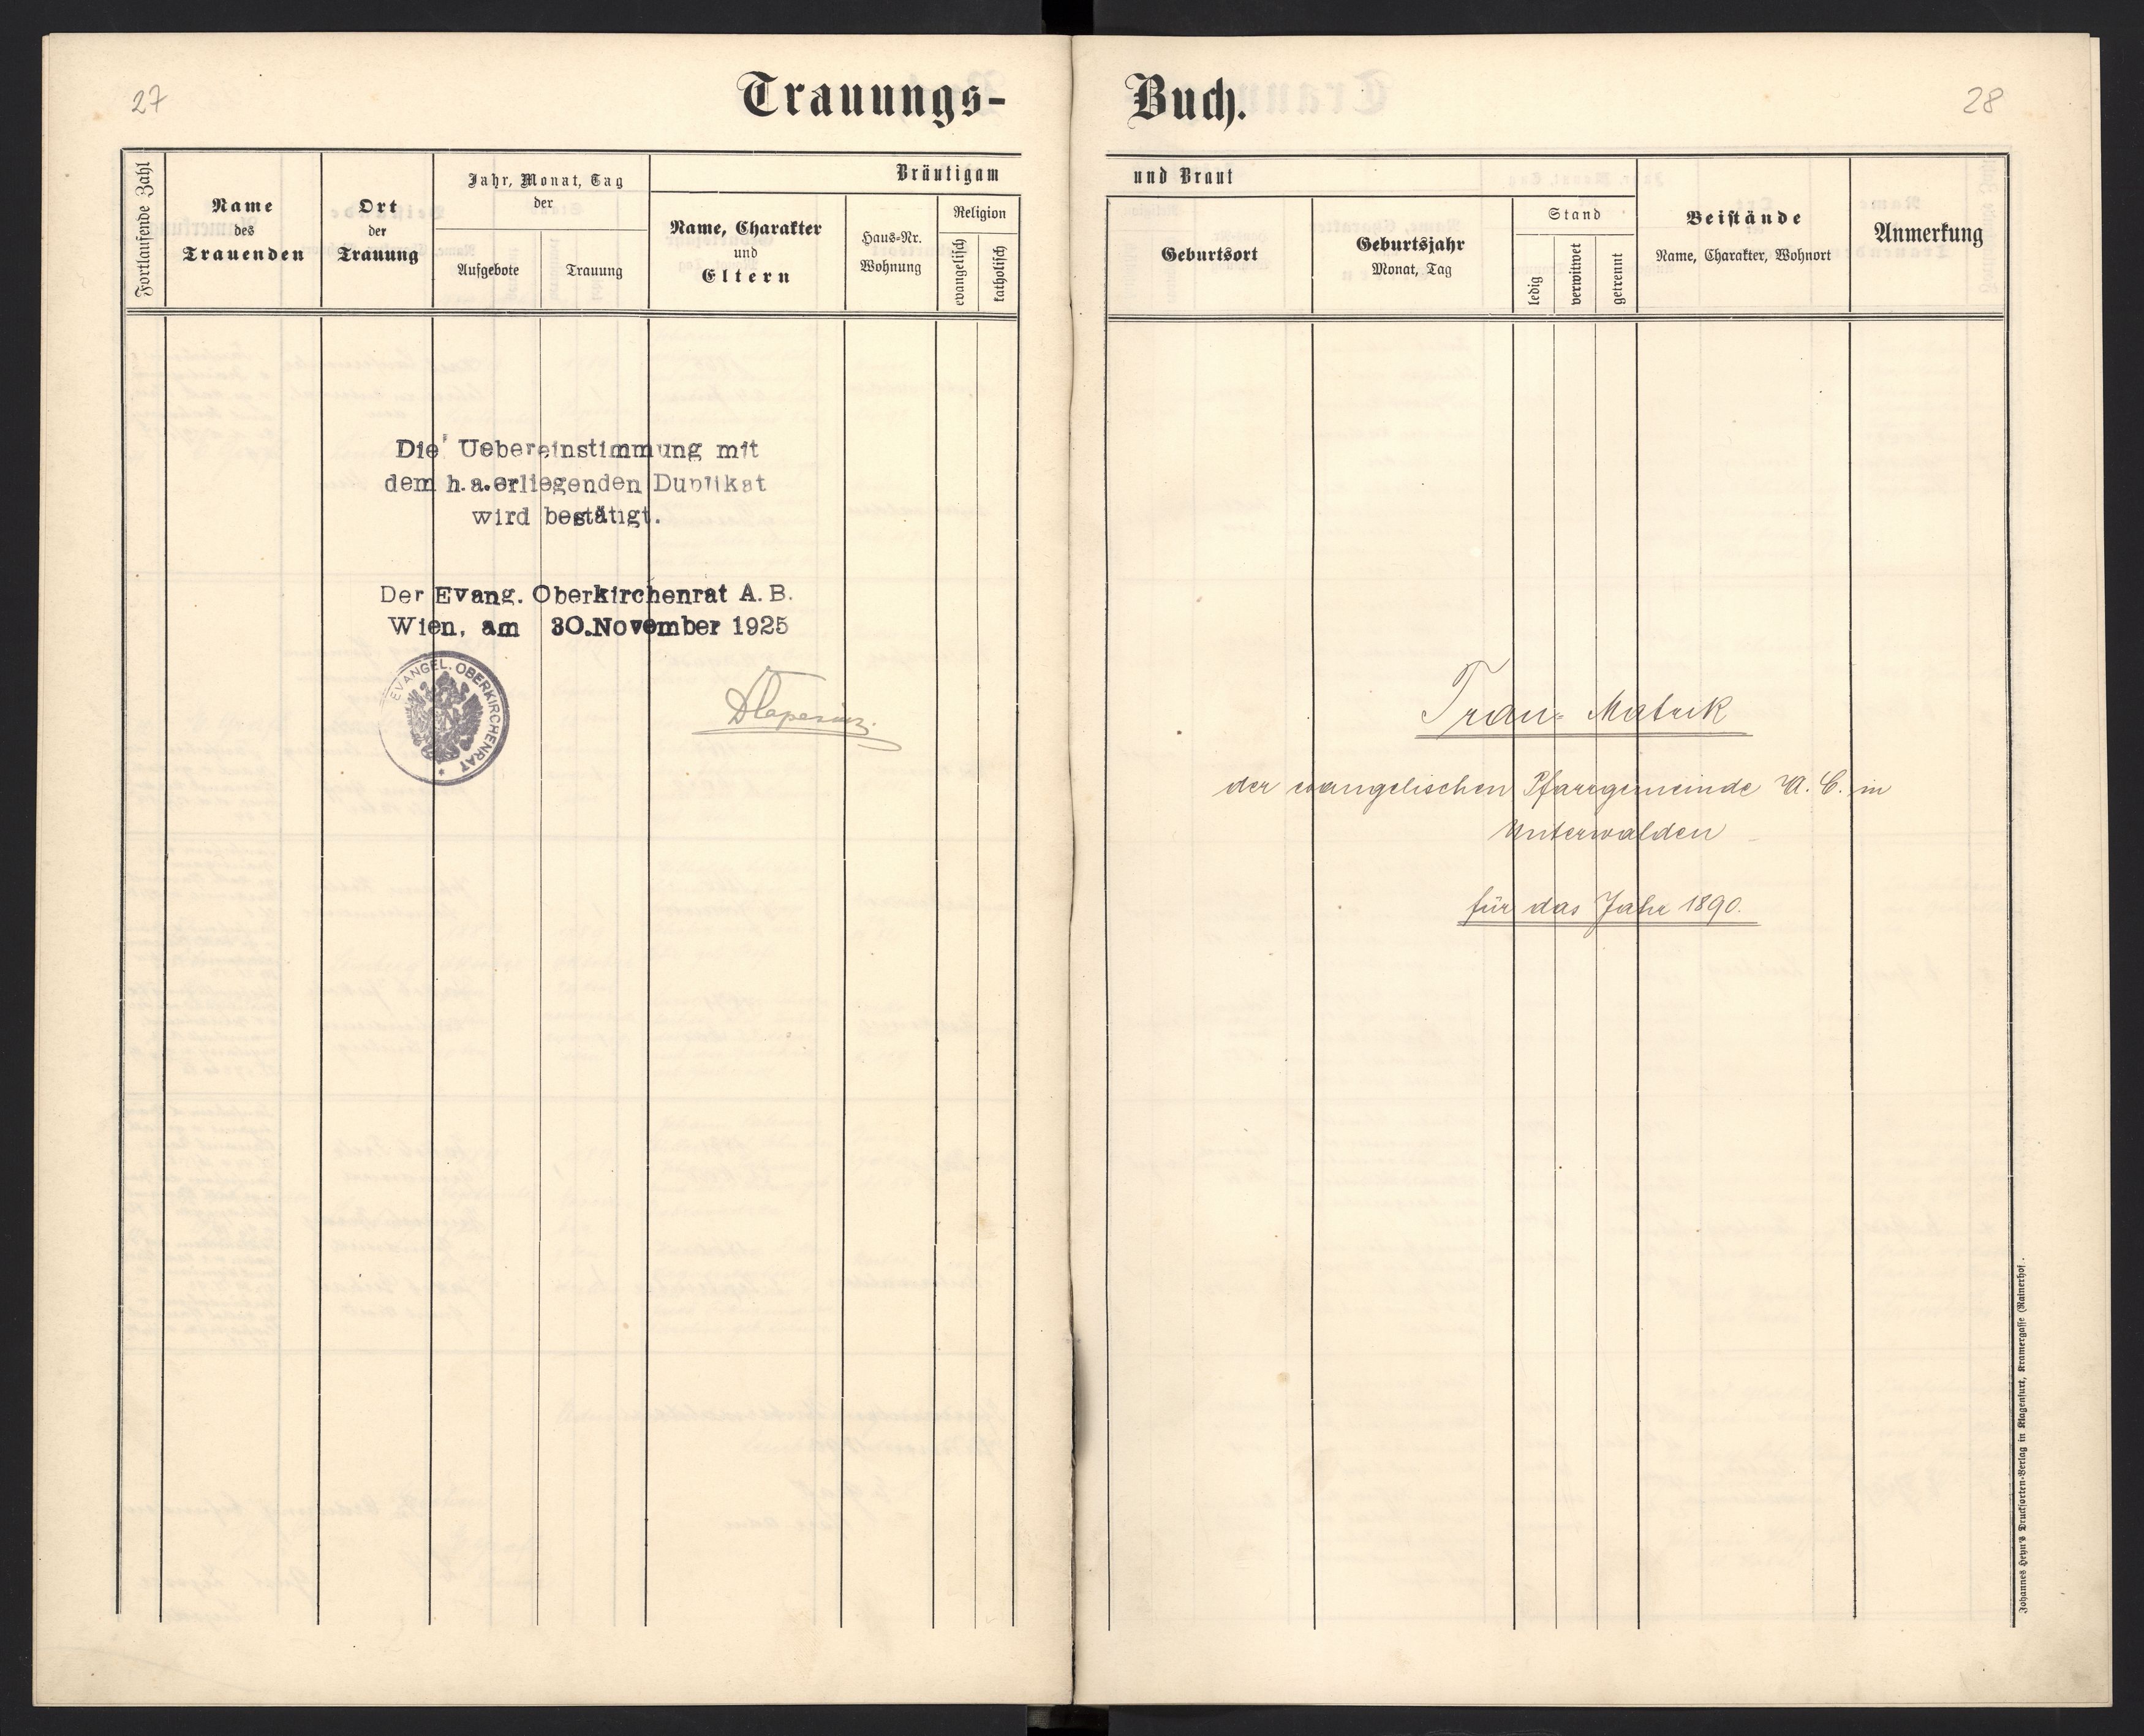 27
Trauungs-
Fortlaufende Zahl
Name
des
Trauenden
Ort
der
Trauung
Jahr, Monat, Tag
der
Aufgebote
Trauung
Bräutigam
Name, Charakter
und
Eltern
Haus-Nr.
Wohnung
Religion
evangelisch
katholisch
Die Uebereinstimmung mit
dem h.a.erliegenden Duplikat
wird bestätigt.
Der Evang. Oberkirchenrat A.B.
Wien, am 30.November 1925
EVANGEL. OBERKIRCHENRAT *
Buch.
28
und Braut
Geburtsort
Geburtsjahr
Monat, Tag
Stand
ledig
verwitwet
getrennt
Beistände
Name, Charakter, Wohnort
Anmerkung
Trau- Matrik
der evangelischen Pfarrgemeinde A. C. in
Unterwalden
für das Jahr 1890.
Johannes Heyn's Drucksorten-Verlag in Klagenfurt, Kramergasse (Rainerhof.